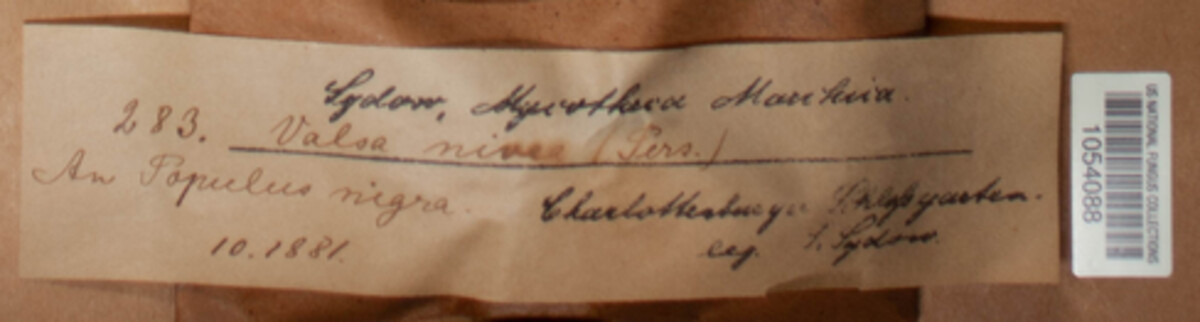 Sydow, Mycotheca Marchica.
283. Valsa nivea (Pers.)
An Populus nigra.
Charlottenburger Schloßgarten.
10.1881.
leg. P. Sydow.
US NATIONAL FUNGUS COLLECTIONS
1054088